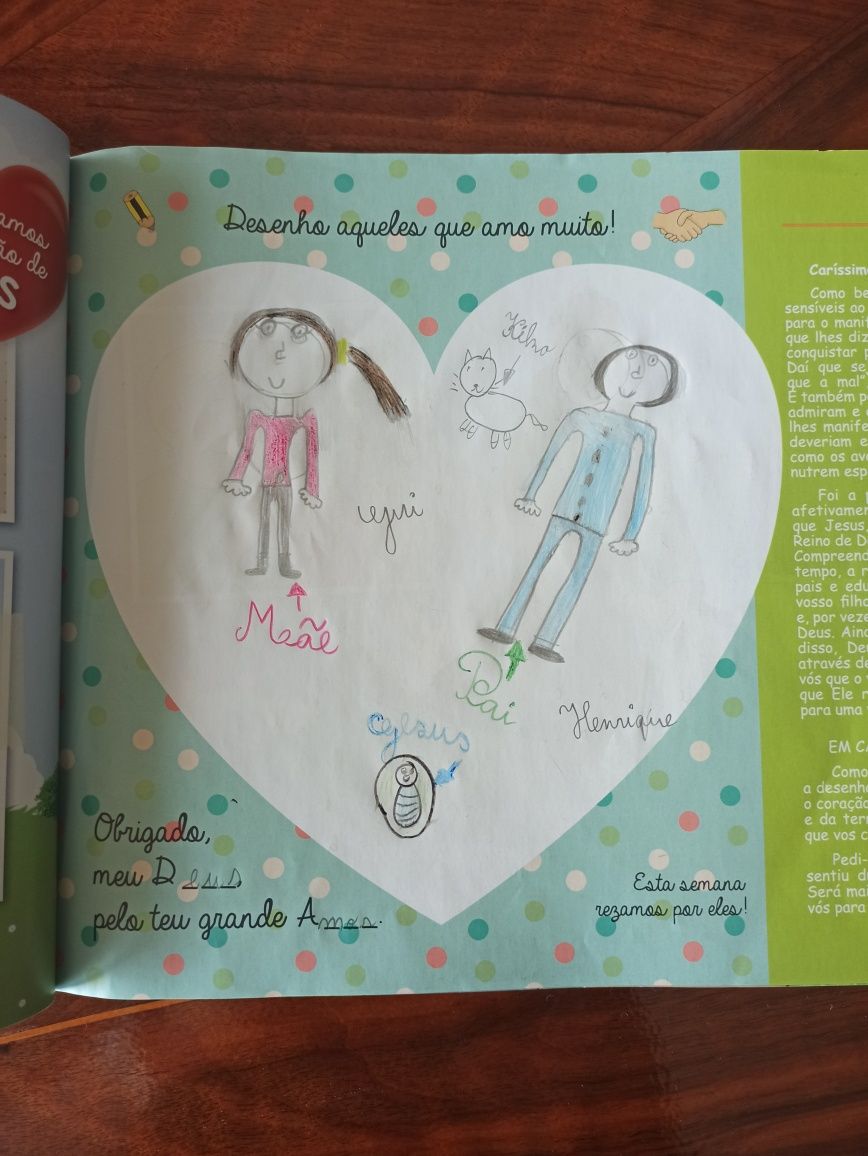 amos
ão de
s
Desenho aqueles que amo muito!
Mãe
Pai
Henrique
Jesus
Obrigado,
meu Deus,
pelo teu grande Amor.
Esta semana
rezamos por eles!
Caríssim
Como be
sensíveis ao
para o mani
que lhes diz
conquistar p
Daí que se
que a mal"
E também p
admiram e
lhes manife
deveriam e
como os av
nutrem esp
Foi a
afetivamen
que Jesus,
Reino de D
Compreend
tempo, a r
pais e edu
vosso filh
e, por veze
Deus. Aind
disso, De
através de
vós que o
que Ele r
para uma
EM CA
Como
a desenh
o coração
e da terr
que vos c
Pedi-
sentiu d
Será mai
vós para